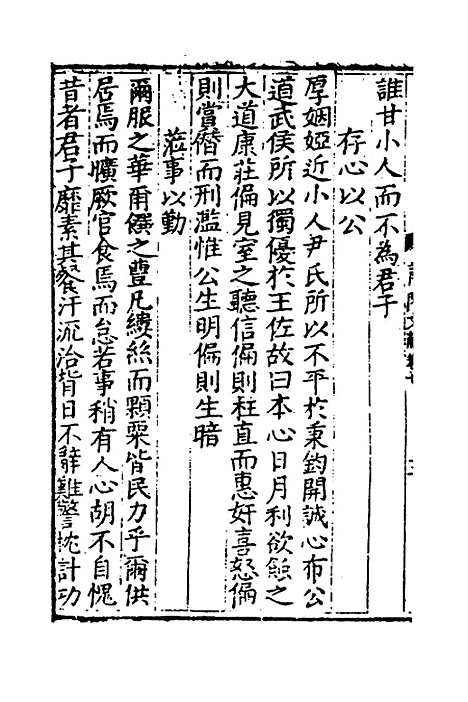 誰甘小人而不為君子
存心以公
厚姻婭近小人尹氏所以不平於秉鈞開誠心布公
道武侯所以獨優於王佐故曰本心日月利欲蝕之
大道康莊偏見窒之聽信偏則枉直而惠奸喜怒偏
則賞僭而刑濫惟公生明偏則生暗
蒞事以勤
爾服之華爾饌之豐凡縷絲而顆粟皆民力乎爾供
居焉而曠厥官食焉而怠若事稍有人心胡不自愧
昔者君子靡素其餐汗流浹背日不辭難警枕計功